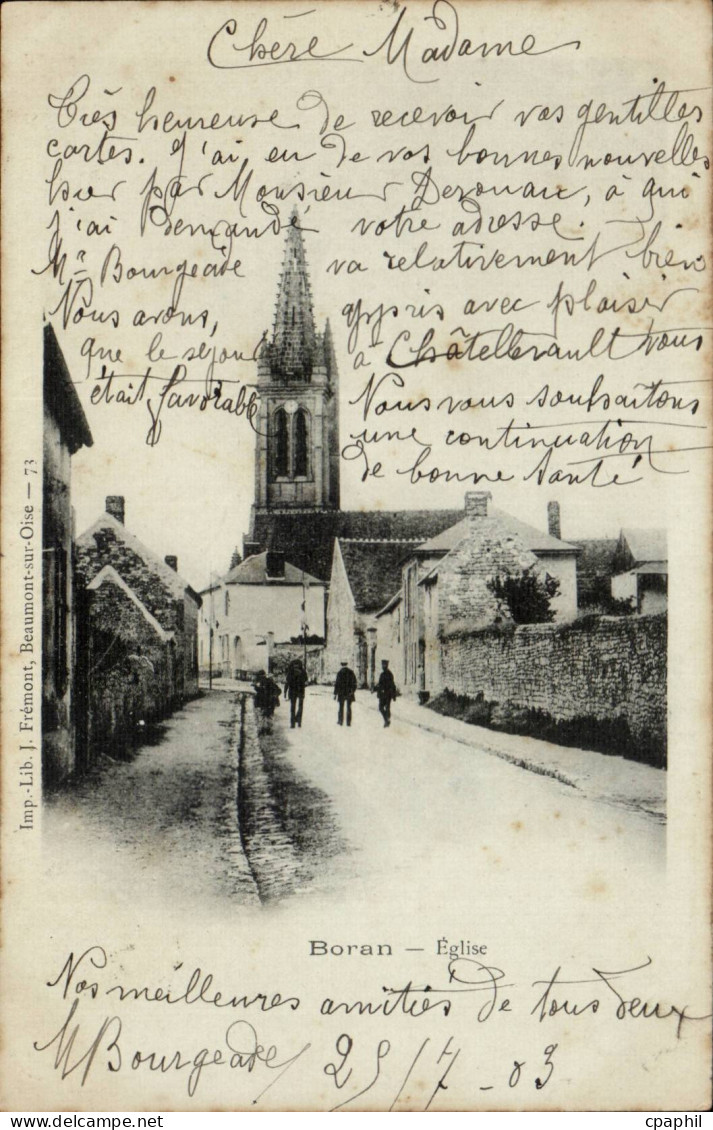 Chère Madame
Très heureuse de recevoir vos gentilles
cartes. J'ai eu de vos bonnes nouvelles
hier par Monsieur, à qui
j'ai demandé votre adresse.
Mr Bourgeade va relativement bien
Nous avons appris avec plaisir
que le séjour à Châtellerault vous
était favorable Nous vous souhaitons
une continuation
de bonne santé
Imp.-Lib. J. Frémont, Beaumont-sur-Oise — 73
Boran — Église
Nos meilleures amitiés de tous deux
M Bourgeade 25/7-03
kacphil
delcampe.net